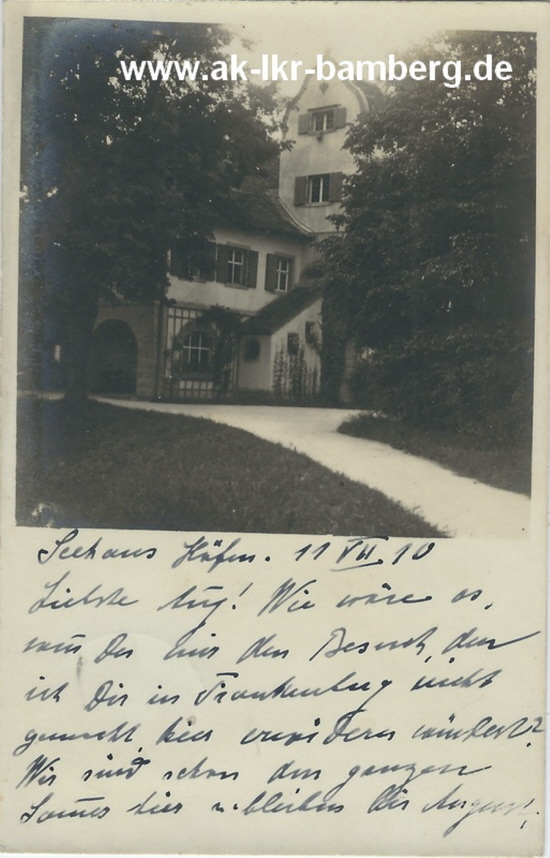 www.ak-lkr-bamberg.de
Seehaus Höfen. 11 VII 10
Liebste Aug! Wie wäre es,
wenn Du mir den Besuch, den
ich Dir in Frankenberg nicht
gemacht hier erwidern würdest?
Wir sind schon den ganzen
hier u. bleiben bis August.